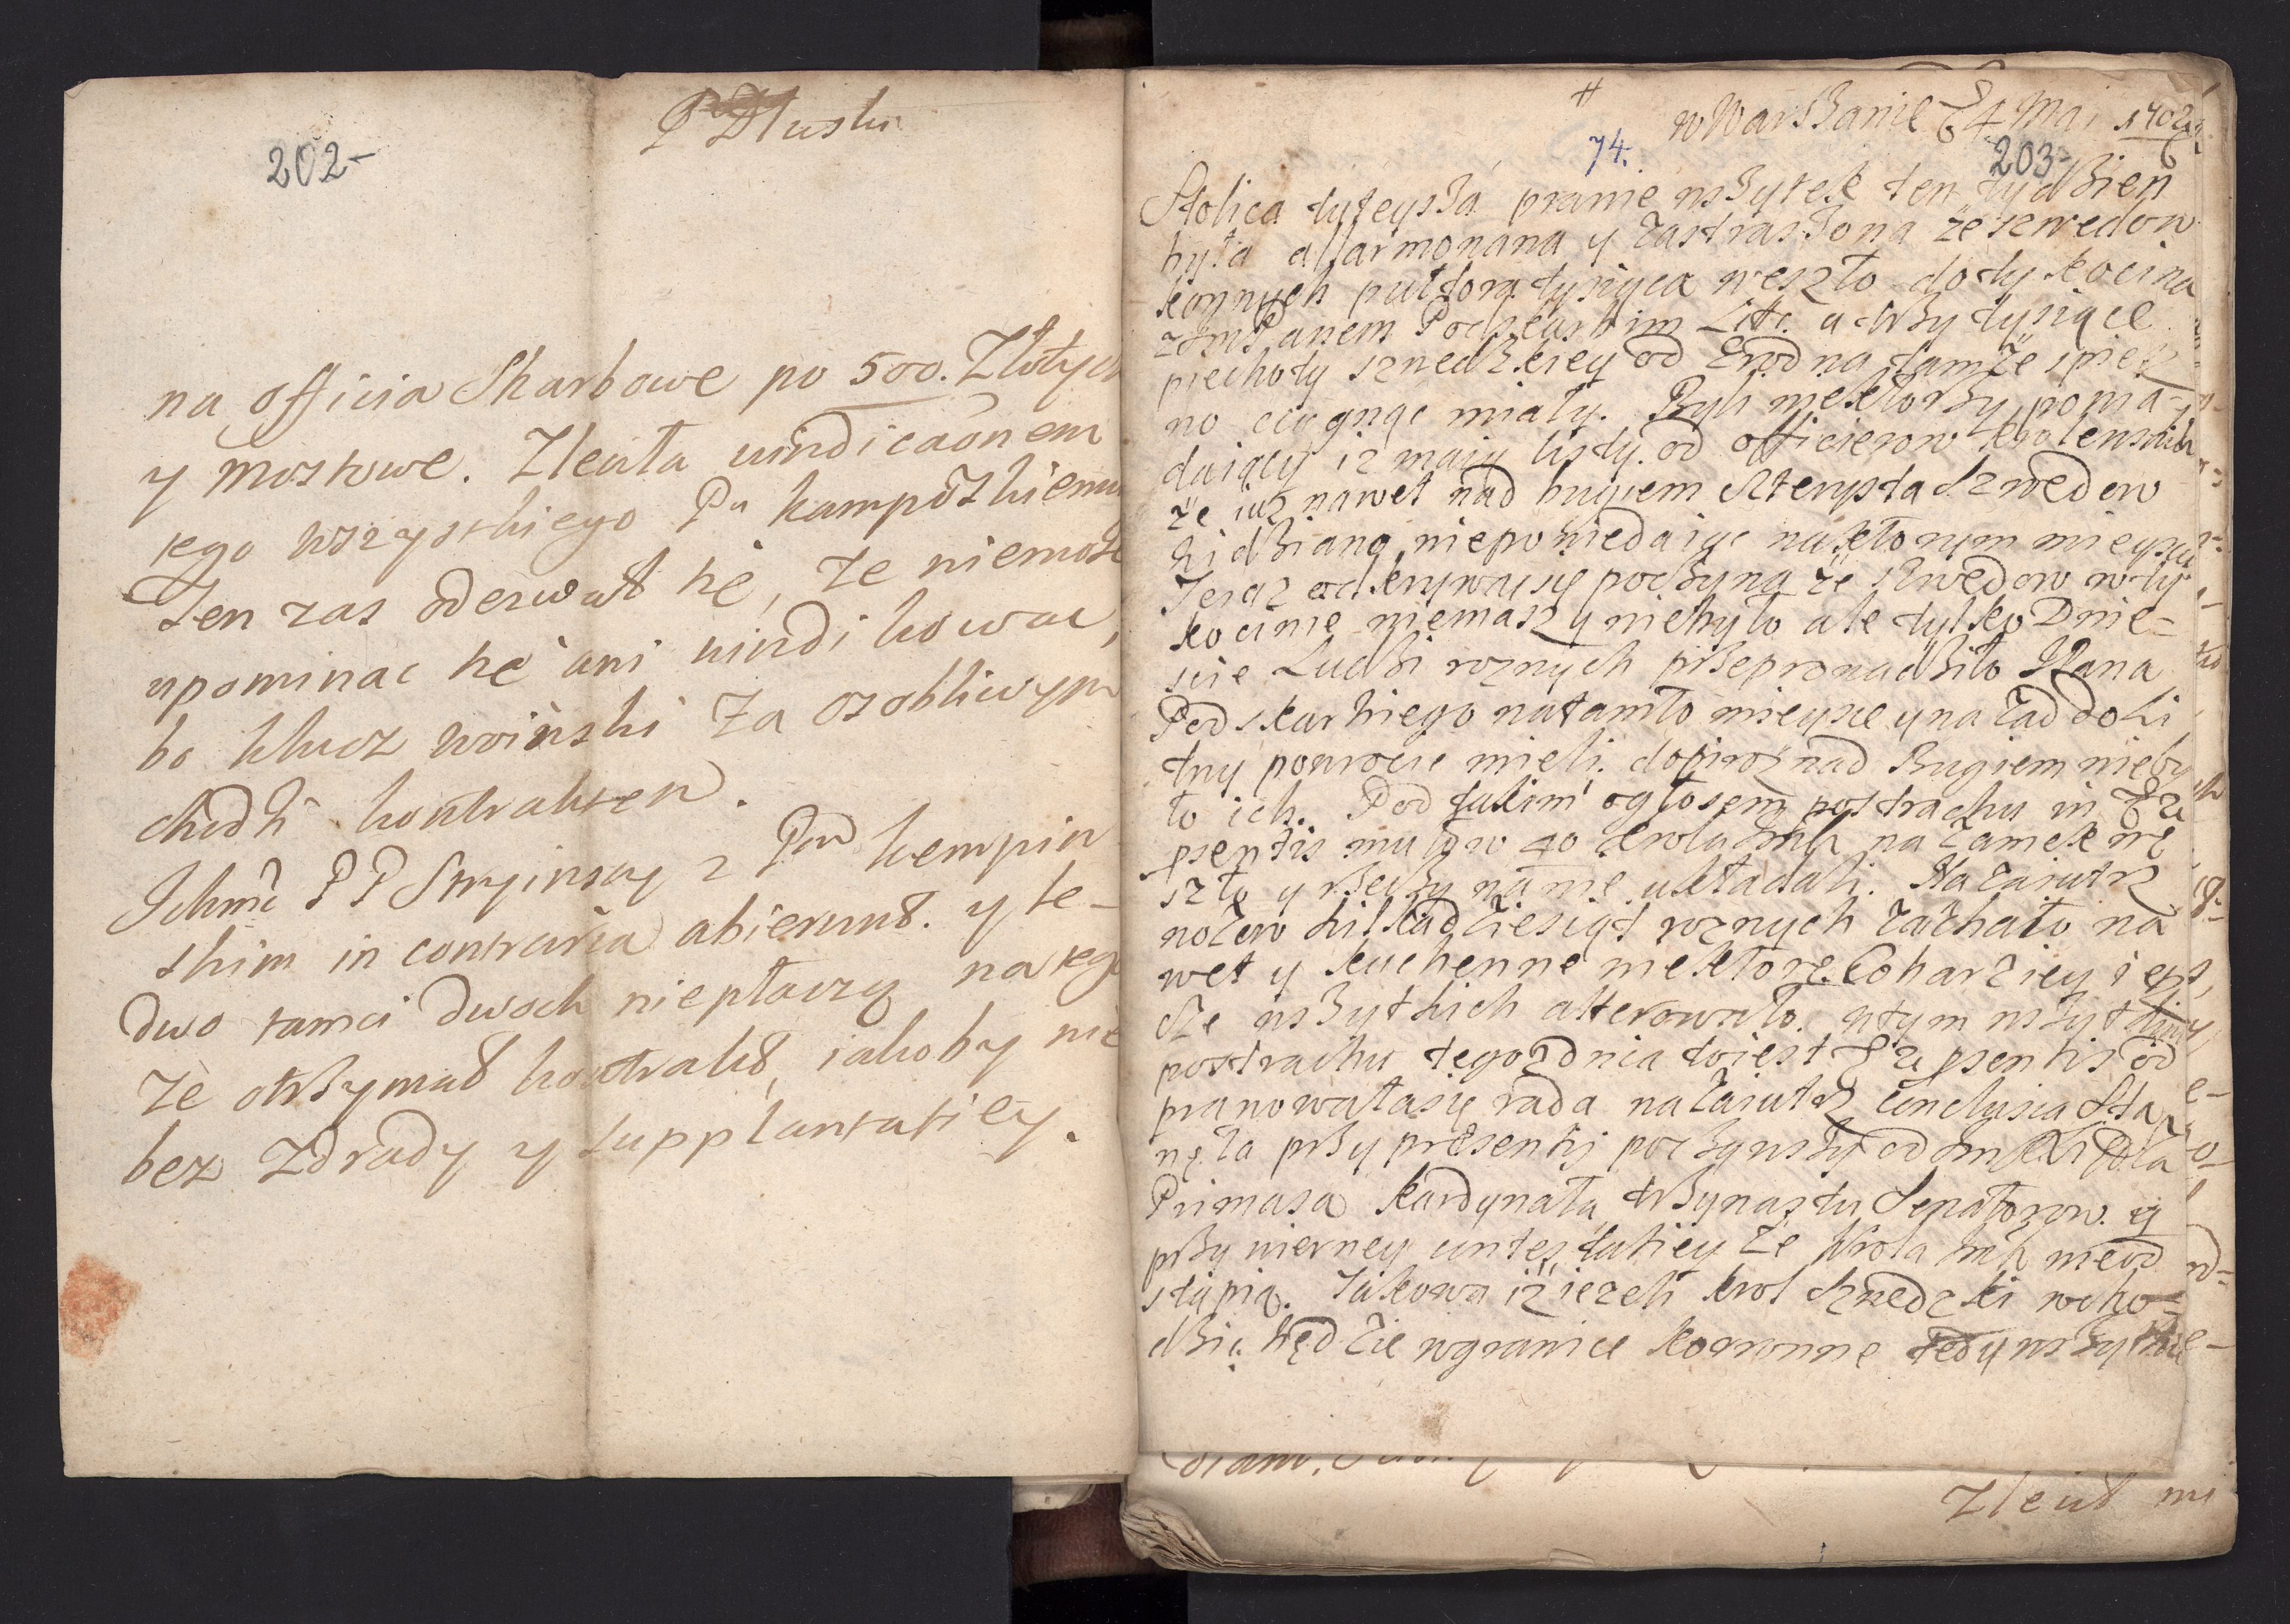 202-
P Dłuski
na officia Skarbowe po 500. Złotych
y mostowe. Zleciła vindicaonem
tego wszystkiego Pu kamposkiemu
ten zas odezwał się, że niemoże
upominac się ani vindikowac,
bo klucz woinski za osobliwym
chodzi kontraktem.
Ichmc PP Stryinscy z Pem kempin
skim in contraria abierunt. y le-
dwo tamci dwoch niepłaczą na tego
że otrzymał kontrakt, iakoby nie
bez zdrady y supplantatiey.
#
w Warszawie 24 Mai 1702
74.
203-
Stolica tuteysza prawie wszytek ten tydzien
była allarmowana y zastraszona że szwedow
konnych pułtora tysiąca weszło do tykocina
z Panem Podskarbim Litt. a trzy tysiące
piechoty szwedzkiey od Grodna tamże spiesz
no ciągnąc miały. Byli niektorzy powia-
daiący iz maią listy od officierow krolewskich
że iuz nawet nad bugiem czterysta szwedow
widziano, niepowiedaiąc na ktorym mieyscu
Teraz odkrywac się poczyna że szwedow w ty
kocinie niemasz y niebyło ale tylko Dwie-
scie Ludzi roznych przeprowadziło Pana
Podskarbiego na tamto mieysce y nazad do Li
twy powrocic mieli. dopiroż nad Bugiem nieby
ło ich. Pod takim ogłosem postrachu in
psentis mułow 40 krola Jmci na zamek we
szło y rzeczy na nie układali. Nazaiutrz
wozow kilkadziesiąt roznych zaiechało na
wet y kuchenne niektore. Co barziey iesz
cze wszytkich alterowało. w tym wszytkim
postrachu tegoz dnia to iest psentis od
prawowała się rada nazaiutrz conclusia sta
nęła przy præsentij poczynszy od Xcia
Primasa Kardynała, trzynastu Senatorow. y
przy wierney contestatiey że krola Jmci nieod
stąpią. Takowa iż iezeli krol szwedzki wcho-
dzic będzie w granice koronne tedy wszytkie
Zlecił mi